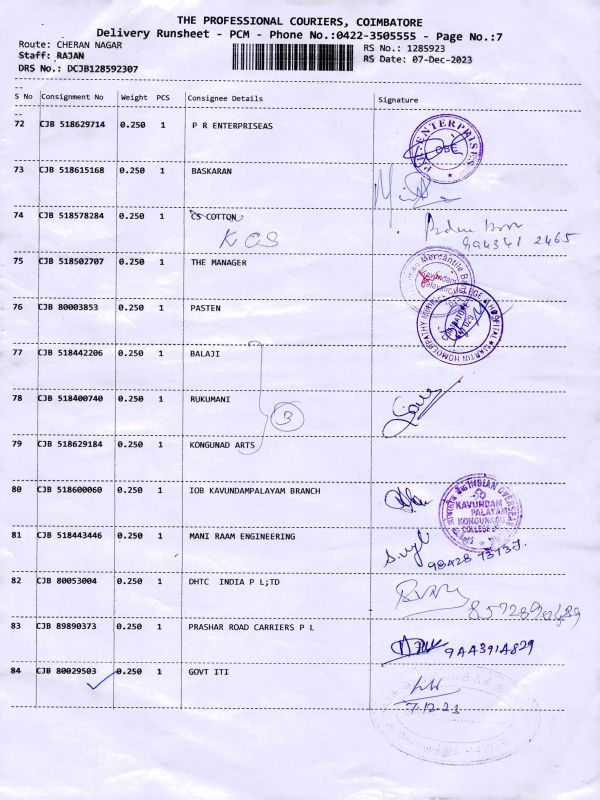 THE PROFESSIONAL COURIERS, COIMBATORE
Delivery Runsheet - PCM - Phone No.:0422-3505555 - Page No.:7
Route: CHERAN NAGAR RS No.: 1285923
Staff: RAJAN RS Date: 07-Dec-2023
DRS No.: DCJB128592307
S No Consignment No Weight PCS Consignee Details Signature
72 CJB 518629714 0.250 1 P R ENTERPRISEAS
ENTERPRISES
73 CJB 518615168 0.250 1 BASKARAN
74 CJB 518578284 0.250 1 CS COTTON
KCS
944341 2465
75 CJB 518502707 0.250 1 THE MANAGER
Mercantile
76 CJB 80003853 0.250 1 PASTEN
MARTIN HOMOEOPATHY COLLEGE HOSPITAL
77 CJB 518442206 0.250 1 BALAJI
78 CJB 518400740 0.250 1 RUKUMANI
3
79 CJB 518629184 0.250 1 KONGUNAD ARTS
80 CJB 518600060 0.250 1 IOB KAVUNDAMPALAYAM BRANCH
INDIAN OVERSEAS
KAVUNDAM
PALAYAM
KONGUNADU
COLLEGE
81 CJB 518443446 0.250 1 MANI RAAM ENGINEERING
82 CJB 80053004 0.250 1 DHTC INDIA P L;TD
83 CJB 89890373 0.250 1 PRASHAR ROAD CARRIERS P L
9443914829
84 CJB 80029503 0.250 1 GOVT ITI
7.12.23